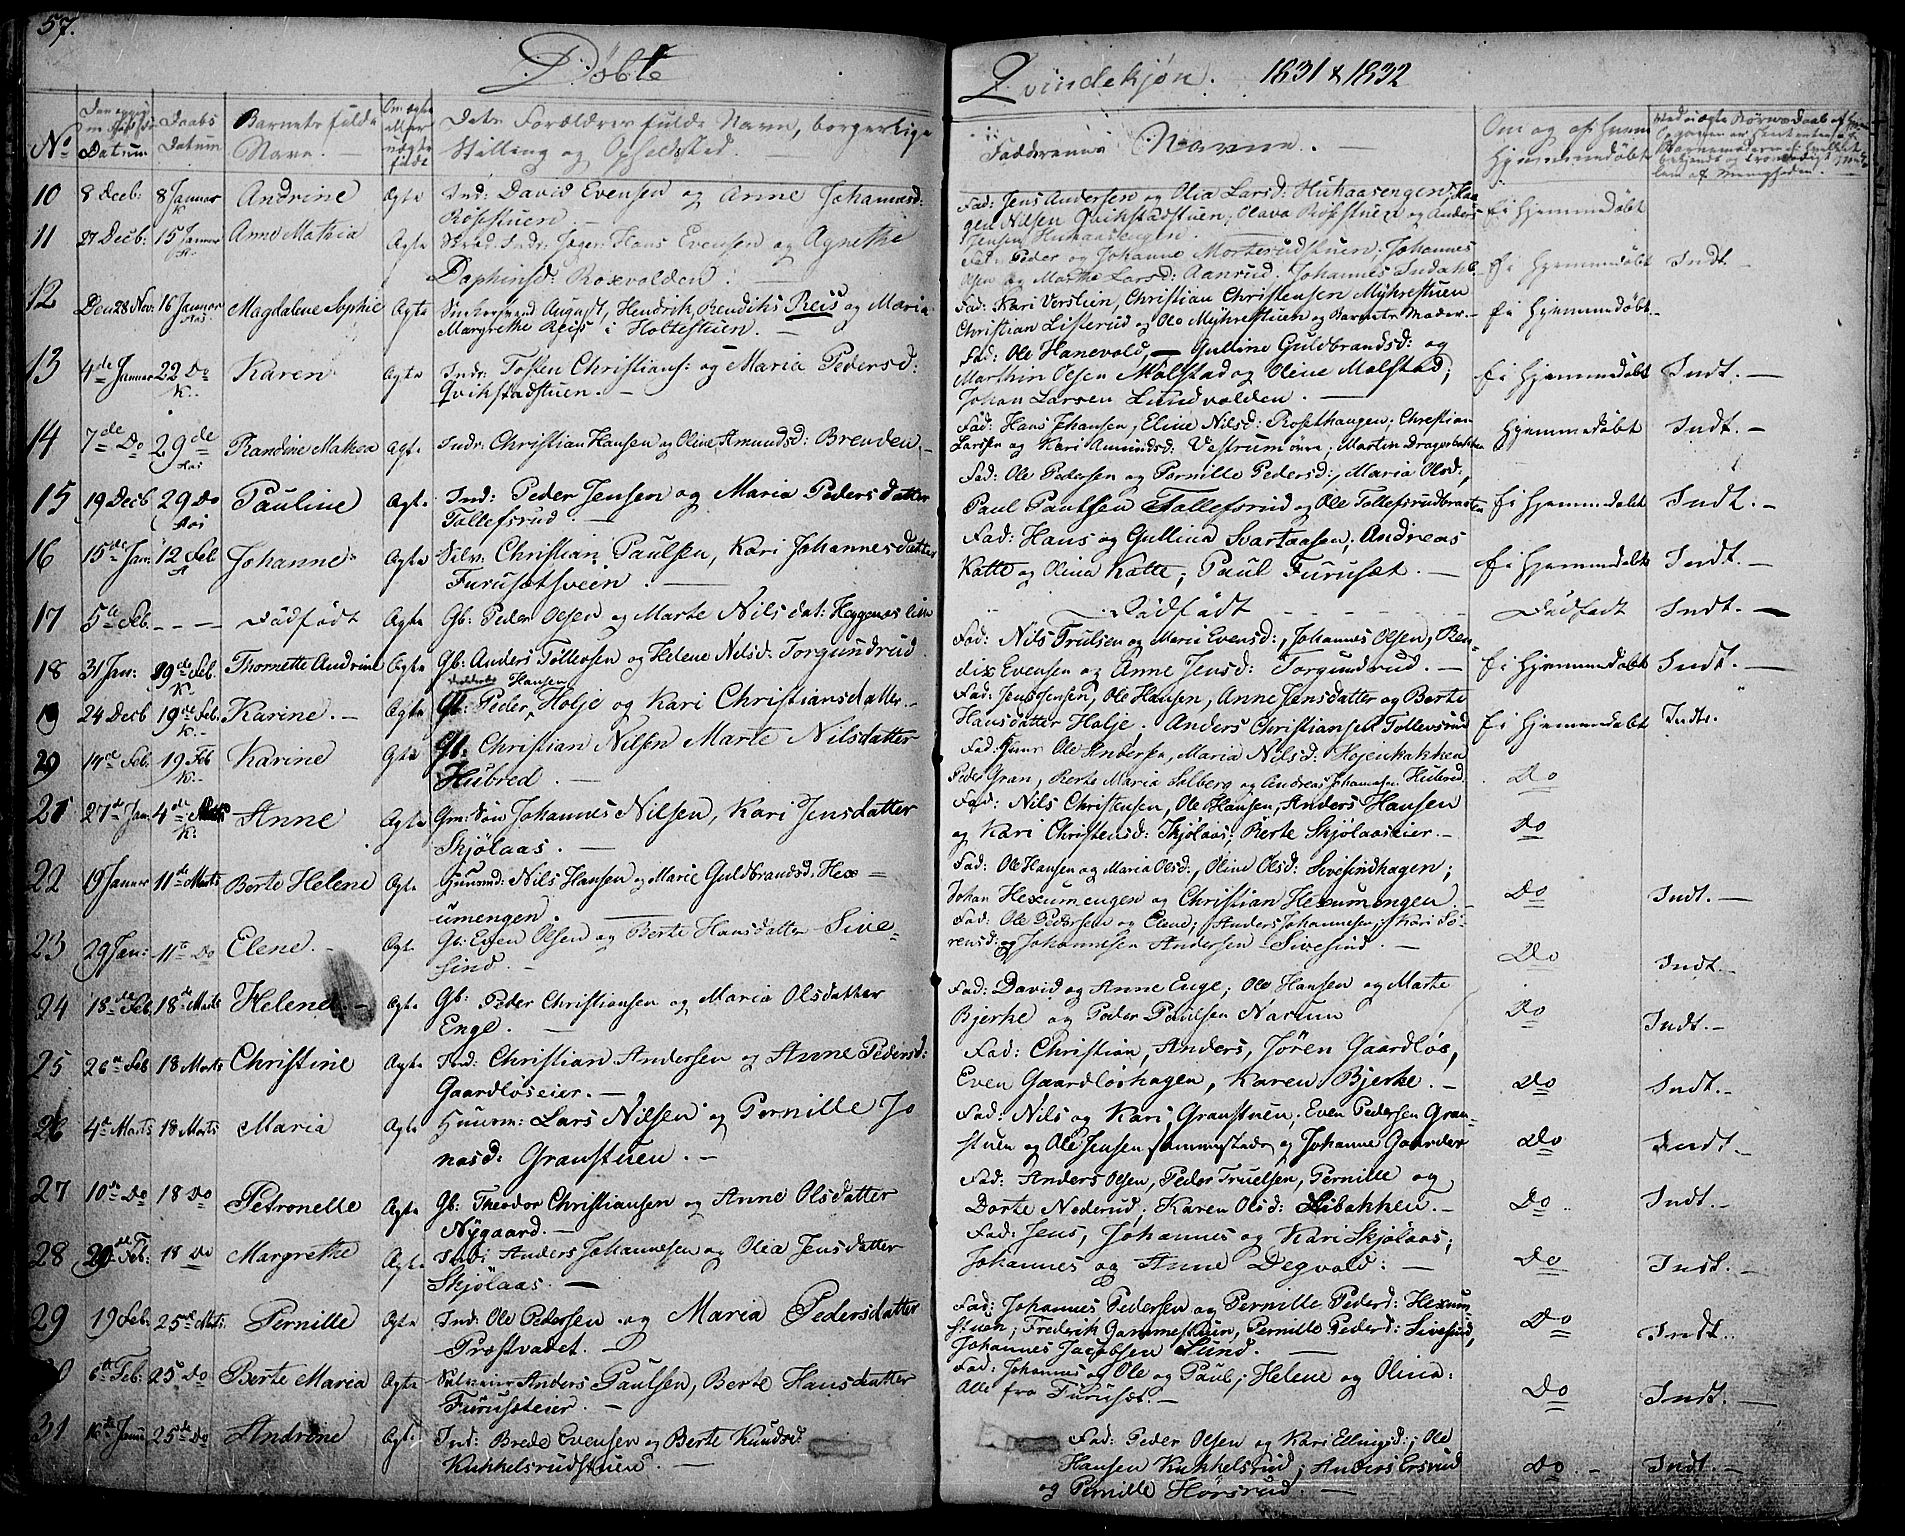 57.
Døbte
Qvindekjøn. 1831 & 1832
No
Datum
Daabs Datum
Barnets fulde Navn.
Om ægte eller uægte født
Dets Forældres fulde Navn, borgerlige Stilling og Opholdsted
Faddernes Navne.
Hjemmedøbt
10 8 Decb: 8 Januar K Andrine Ægte Ind: David Evensen og Anne Johannesd:
Røsstuen. —
Fad: Jens Andersen og Olia Larsd: Huhaasengen,
gen Nilsen Qvikstadstuen; Olava Røsstuen og Anders
Jensen Huhaasengen.
fi Hjemmedøbt
11 27 Decb: 15 Januar Anne Mathia Ægte Ind: Jæger: Hans Evensen og Agnethe
Daphinsd: Roxvolden. —
Fad: Peder og Johanne Morterudstuen; Johannes
Olsen og Marthe Larsd: Aanrud. Johannes Indahl.
fi Hjemmedøbt Indt. —
12 Den 28 Nov. 16 Januar Aas Magdalene Sophie Ægte August, Hendrik Bendiths Reis og Maria
Margrethe Reiss i Holtestuen. —
Fad: Kari Verstein, Christian Christensen Myhrestuen
Christian Listerud og Ole Myhrestuen og Barnets Moder. —
fi Hjemmedøbt. —
13 4de Januar 22 Do K. Karen Ægte Indr: Tosten Christians: og Maria Pedersd:
Qvikstadstuen. —
Fad: Ole Hanevold, — Gulline Guldbrandsd: og
Marthin Olsen Malstad og Oline Malstad;
Johan Larsen Lundvolden. —
fi Hjemmedøbt Indt. —
14 7de Do 29de Aas Randine Mathea Ægte Indr: Christian Hansen og Oline Amundsd: Brenden. —
Fad: Hans Johansen, Eline Nilsd: Rosethaugen; Christian
Larsen og Kari Amundsd: Vestrum øvre; Martin Dragerbakken
Hjemmedøbt Indt. —
15 19 Decb 29 Do Aas Pauline Ægte Ind: Peder Jensen og Maria Pedersdatter
Tollefsrud. —
Fad: Ole Pedersen og Pernille Pedersd:, Maria Olsd;
Paul Paulsen Tollefsrud og Ole Tollefsrudbraaten
fi Hjemmedøbt Indt. —
16 15de Jan: 12 Feb Johanne Ægte Selv: Christian Paulsen, Kari Johannesdatter
Furusetsveen. —
Fad: Hans og Gullina Svartaasen; Andreas
Katte og Olina Katte; Paul Furuset. —
fi Hjemmedøbt Indt. —
17 5te Feb. — — Dødfødt Ægte Gb: Peder Olsen og Marte Nilsdat: Heggenes
Dødfødt
Dødfødt Indt. —
18 31 Jan: 19de Feb. K. Thornette Andrine Ægte Gb: Anders Tollevsen og Helene Nilsd: Torgundrud
Fad: Nils Trulsen og Marie Evensd:, Johannes Olsen, Ben-
dix Evensen og Anne Jensd: Torgundrud. —
fi Hjemmedøbt Indt. —
19 24 Decb 19de Feb. K. Karine. — Ægte Gb: Peder Hansen Holje og Kari Christiansdatter. —
Fad: Jens Jensen, Ole Hansen, Anne Jensdatter og Berte
Hansdatter Holje. Anders Christiansen Tollevsrud
fi Hjemmedøbt Indt.
20 14de Feb. 19 Feb K. Karine Ægte Gb: Christian Nilsen Marte Nilsdatter
Hubred. —
Fad: Ole Andersen, Maria Nilsd: Hojenbakken
Peder Gran, Berte Maria Solberg og Andreas Johannesen Huberud.
Do
21 27de Jan: 4de Marts K: Anne Ægte Gm: Søn Johannes Nilsen, Kari Jensdatter
Skjølaas. —
Fad: Nils Christensen, Ole Hansen, Anders Hansen
og Kari Christensd: Skjølaas; Berte Skjølaaseier. —
Do
22 19 Januar 11de Marts Berte Helene Ægte Huusmd: Nils Hansen og Marie Guldbrandsd. Hex =
umengen. —
Fad: Ole Hansen og Maria Olsd:, Oline Olsd: Sivesindhagen;
Johan Hexumengen og Christian Hexumengen. —
Do Indt. —
23 29 Jan: 11te Do Elene. — Ægt. Gb: Even Olsen og Berte Hansdatter Sive-
sind. —
Fad: Ole Pedersen og Elene; Anders Johannesen; Kari Sø-
rensd: og Johannesen Andersen Sivesind. —
Do Indt. —
24 18de Feb. 18de Marts Helene — Ægte Gb: Peder Christiansen og Maria Olsdatter
Enge. —
Fad: David og Anne Enge; Ole Hansen og Marte
Bjerke og Peder Paulsen Narum
Do Indt. —
25 26de Feb 18 Marts Christine Ægte Ind: Christian Andersen og Anne Pedersd:
Gaardløseier. —
Fad: Christian, Anders, Jören Gaardløs,
Even Gaardløshagen, Karen Bjerke. —
Do Indt. —
26 4de Marts 18 Marts Maria Ægte Huusm: Lars Nilsen og Pernille Jo
nasd: Granstuen. —
Fad: Nils og Kari Granstuen; Even Pedersen Gran-
stuen og Ole Jensen sammesteds og Johanne Gaarder
Do Indt. —
27 10de Do 18 Do Petronelle Ægte Gb: Theodor Christiansen og Anne Olsdatter
Nygaard. —
Fad: Anders Olsen, Peder Truelsen, Pernille og
Dorte Nøderud; Karen Olsd: Libakken. —
Do Indt. —
28 20de Feb: 18 Do Margrethe Ægte Ind: Anders Johannesen og Olia Jensdatter
Skjølaas. —
Fad: Jens, Johannes og Kari Skjølaas;
Johannes og Anne Degvold: —
Do Indt. —
29 19 Feb: 25de Marts. Pernille Ægte Ind: Ole Pedersen og Maria Pedersdatter
Præstvadet. —
Fad: Johannes Pedersen og Pernille Pedersd: Hexum-
stuen; Frederik Gammestuen, Pernille Pedersd: Sivesind,
Johannes Jacobsen Lund. —
Do Indt.
30 6te Feb: 25 Do Berte Maria Ægte Selveier Anders Paulsen, Berte Hansdatter
Furuseteier. —
Fad: Johannes og Ole og Paul; Helene og Olina.
Alle fra Furuset. —
Do Indt. —
31 16de Janu: 25de Do Andrine Ægte Ind: Brede Evensen og Berte Knudsd:
Kukkelsrudstuen. —
Fad: Peder Olsen og Kari Ellingsd:; Ole
Hansen Kukkelsrud; Anders Ersrud
og Pernille Horsrud. —
Do — Indt. —